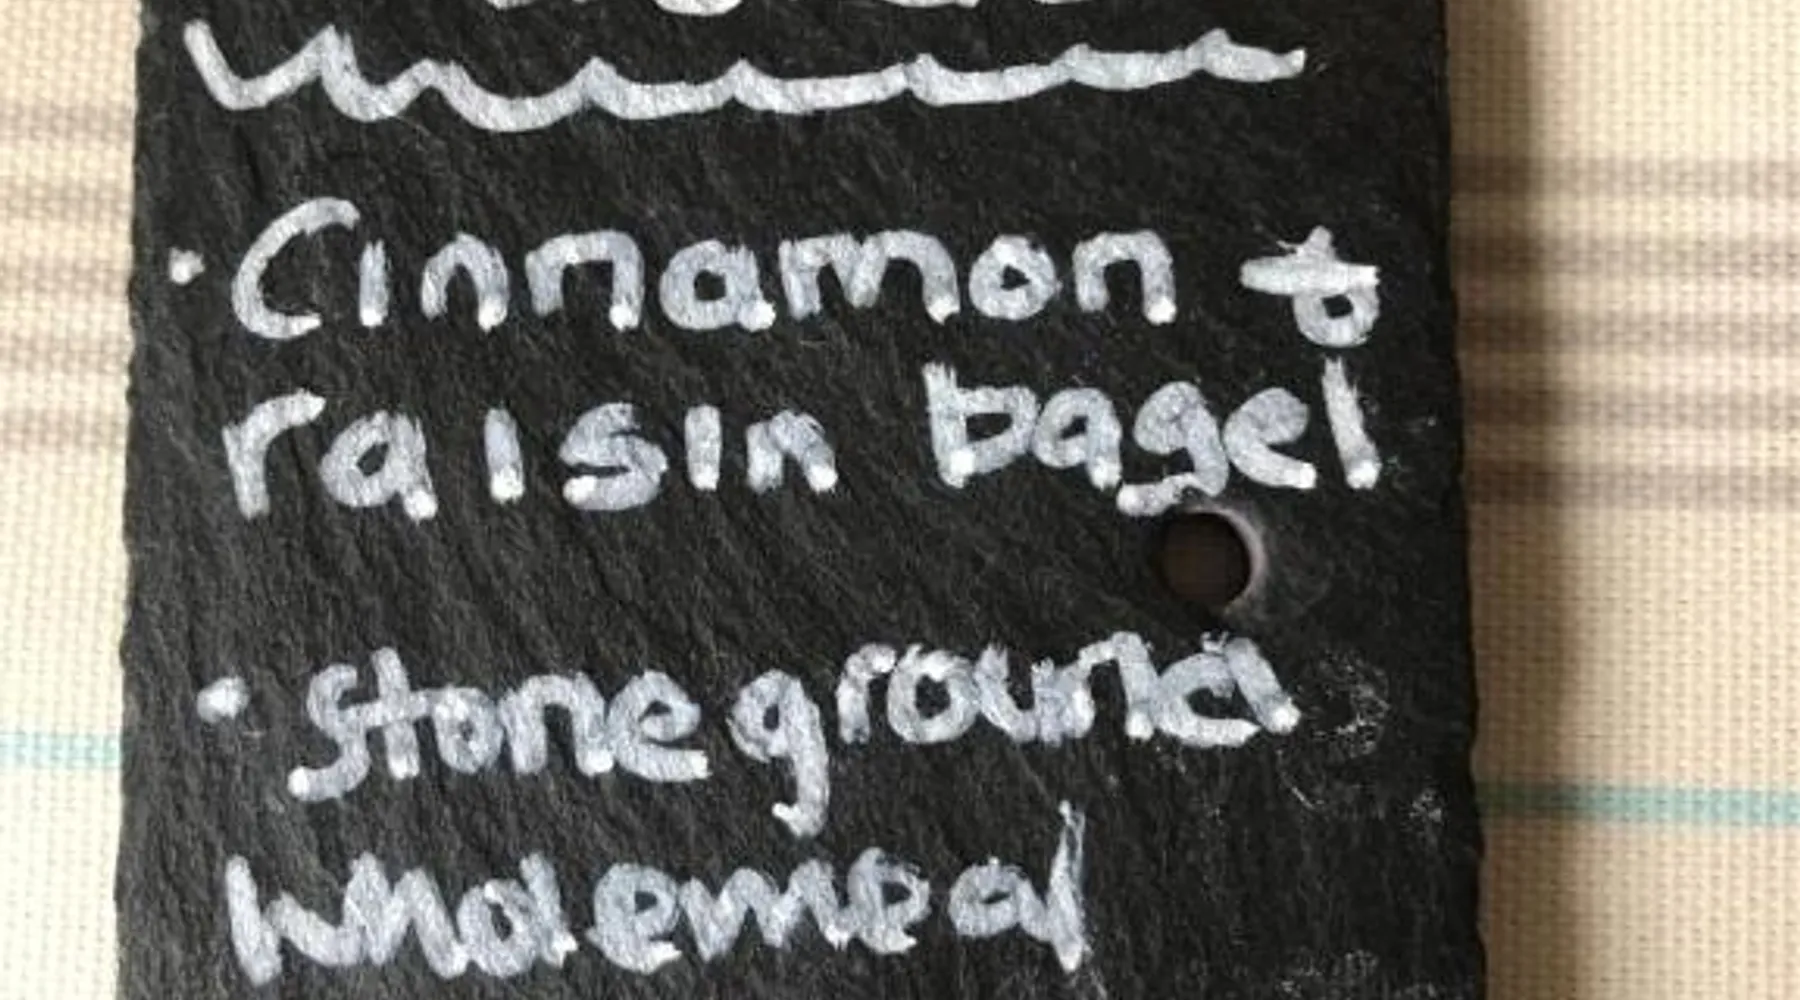 · Cinnamon &
raisin bagel
· Stoneground
wholemeal